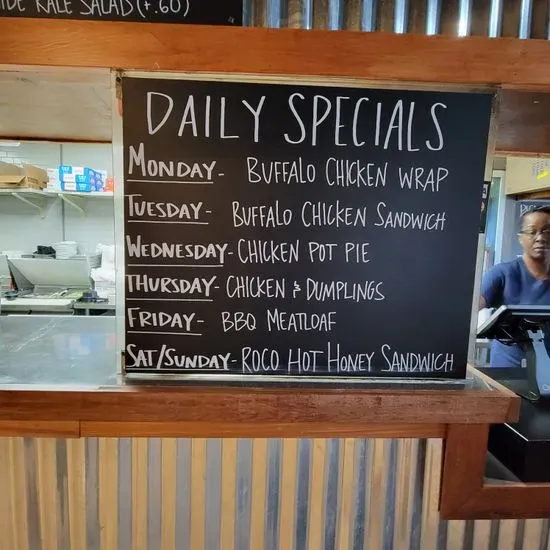 IDE KALE SALAD (+.60)
DAILY SPECIALS
MONDAY- BUFFALO CHICKEN WRAP
TUESDAY- BUFFALO CHICKEN SANDWICH
WEDNESDAY- CHICKEN POT PIE
THURSDAY- CHICKEN & DUMPLINGS
FRIDAY- BBQ MEATLOAF
SAT/SUNDAY- ROCO HOT HONEY SANDWICH